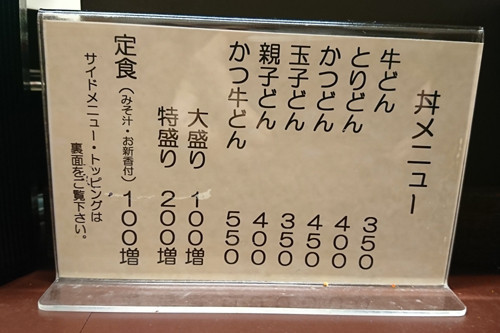 丼メニュー
牛どん 350
とりどん 400
かつどん 450
玉子どん 350
親子どん 400
かつ牛どん 550
大盛り 100増
特盛り 200増
定食(みそ汁・お新香付) 100増
サイドメニュー・トッピングは
裏面をご覧下さい。